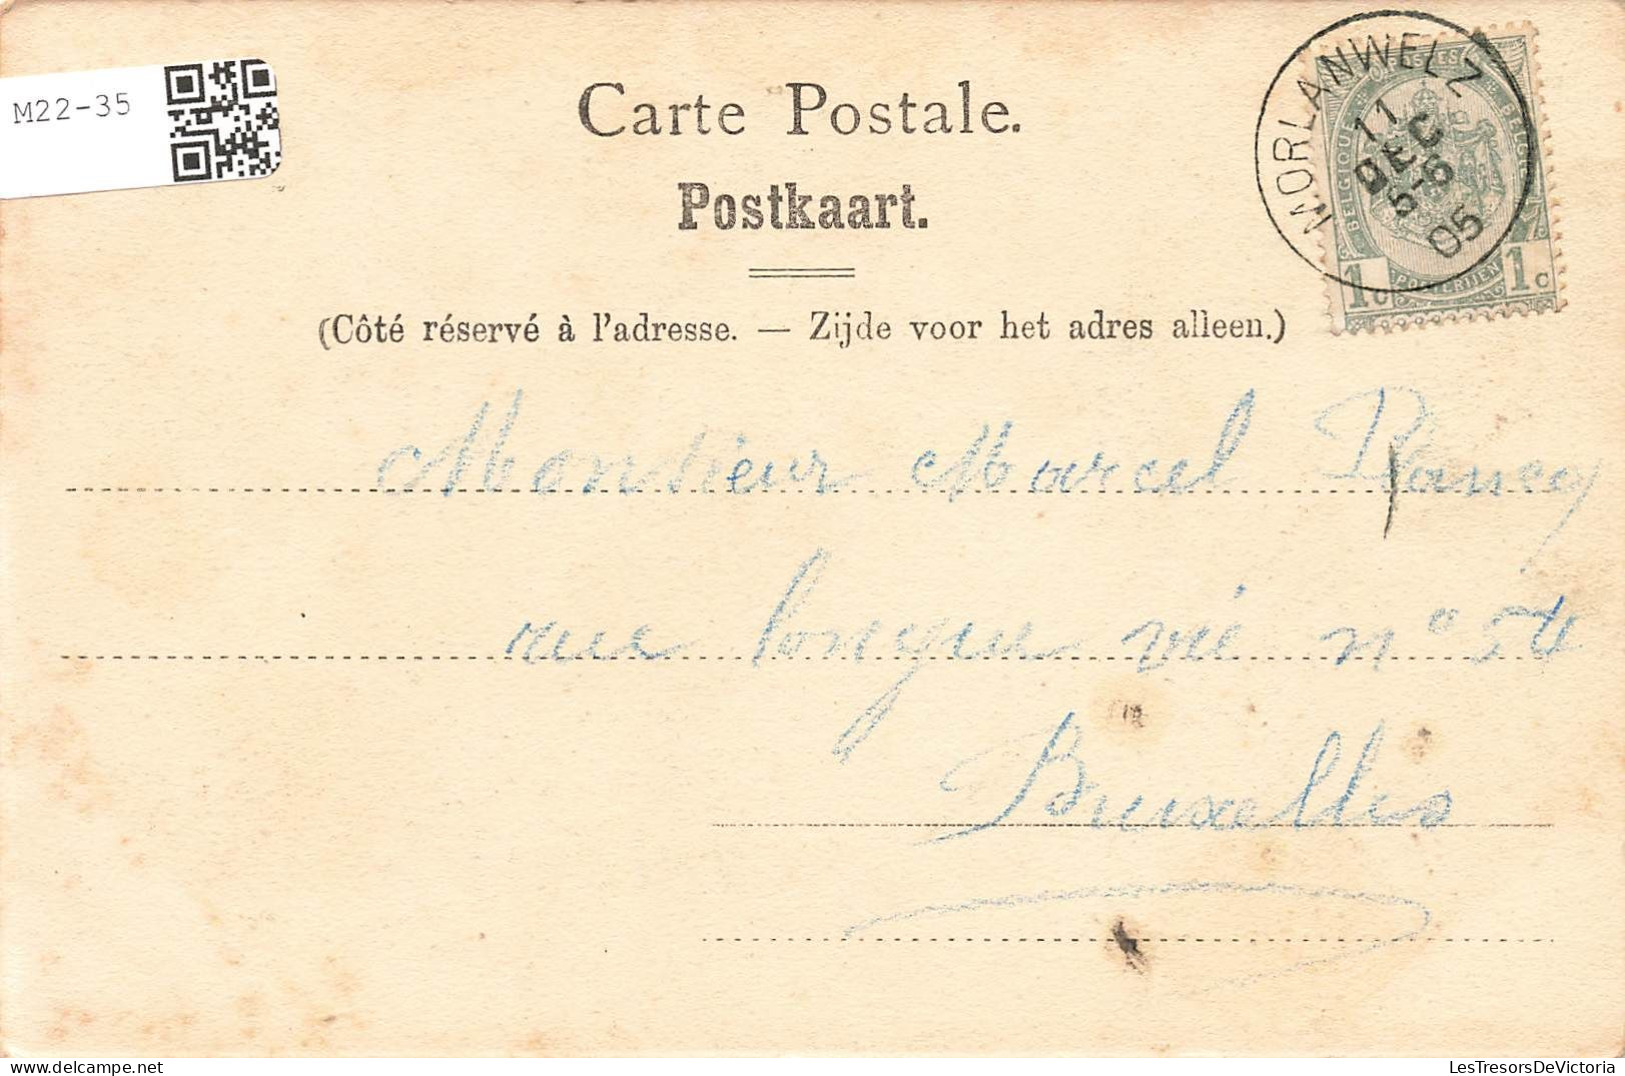 M22-35
Carte Postale.
Postkaart.
(Côté réservé à l'adresse. — Zijde voor het adres alleen.)
MORLANWELZ
11
DEC
5-6
05
BELGIQUE
BELGIË
POSTERIJEN
1c 1c
Monsieur Marcel
rue longue vie n° 54
Bruxelles
LesTresorsDeVictoria